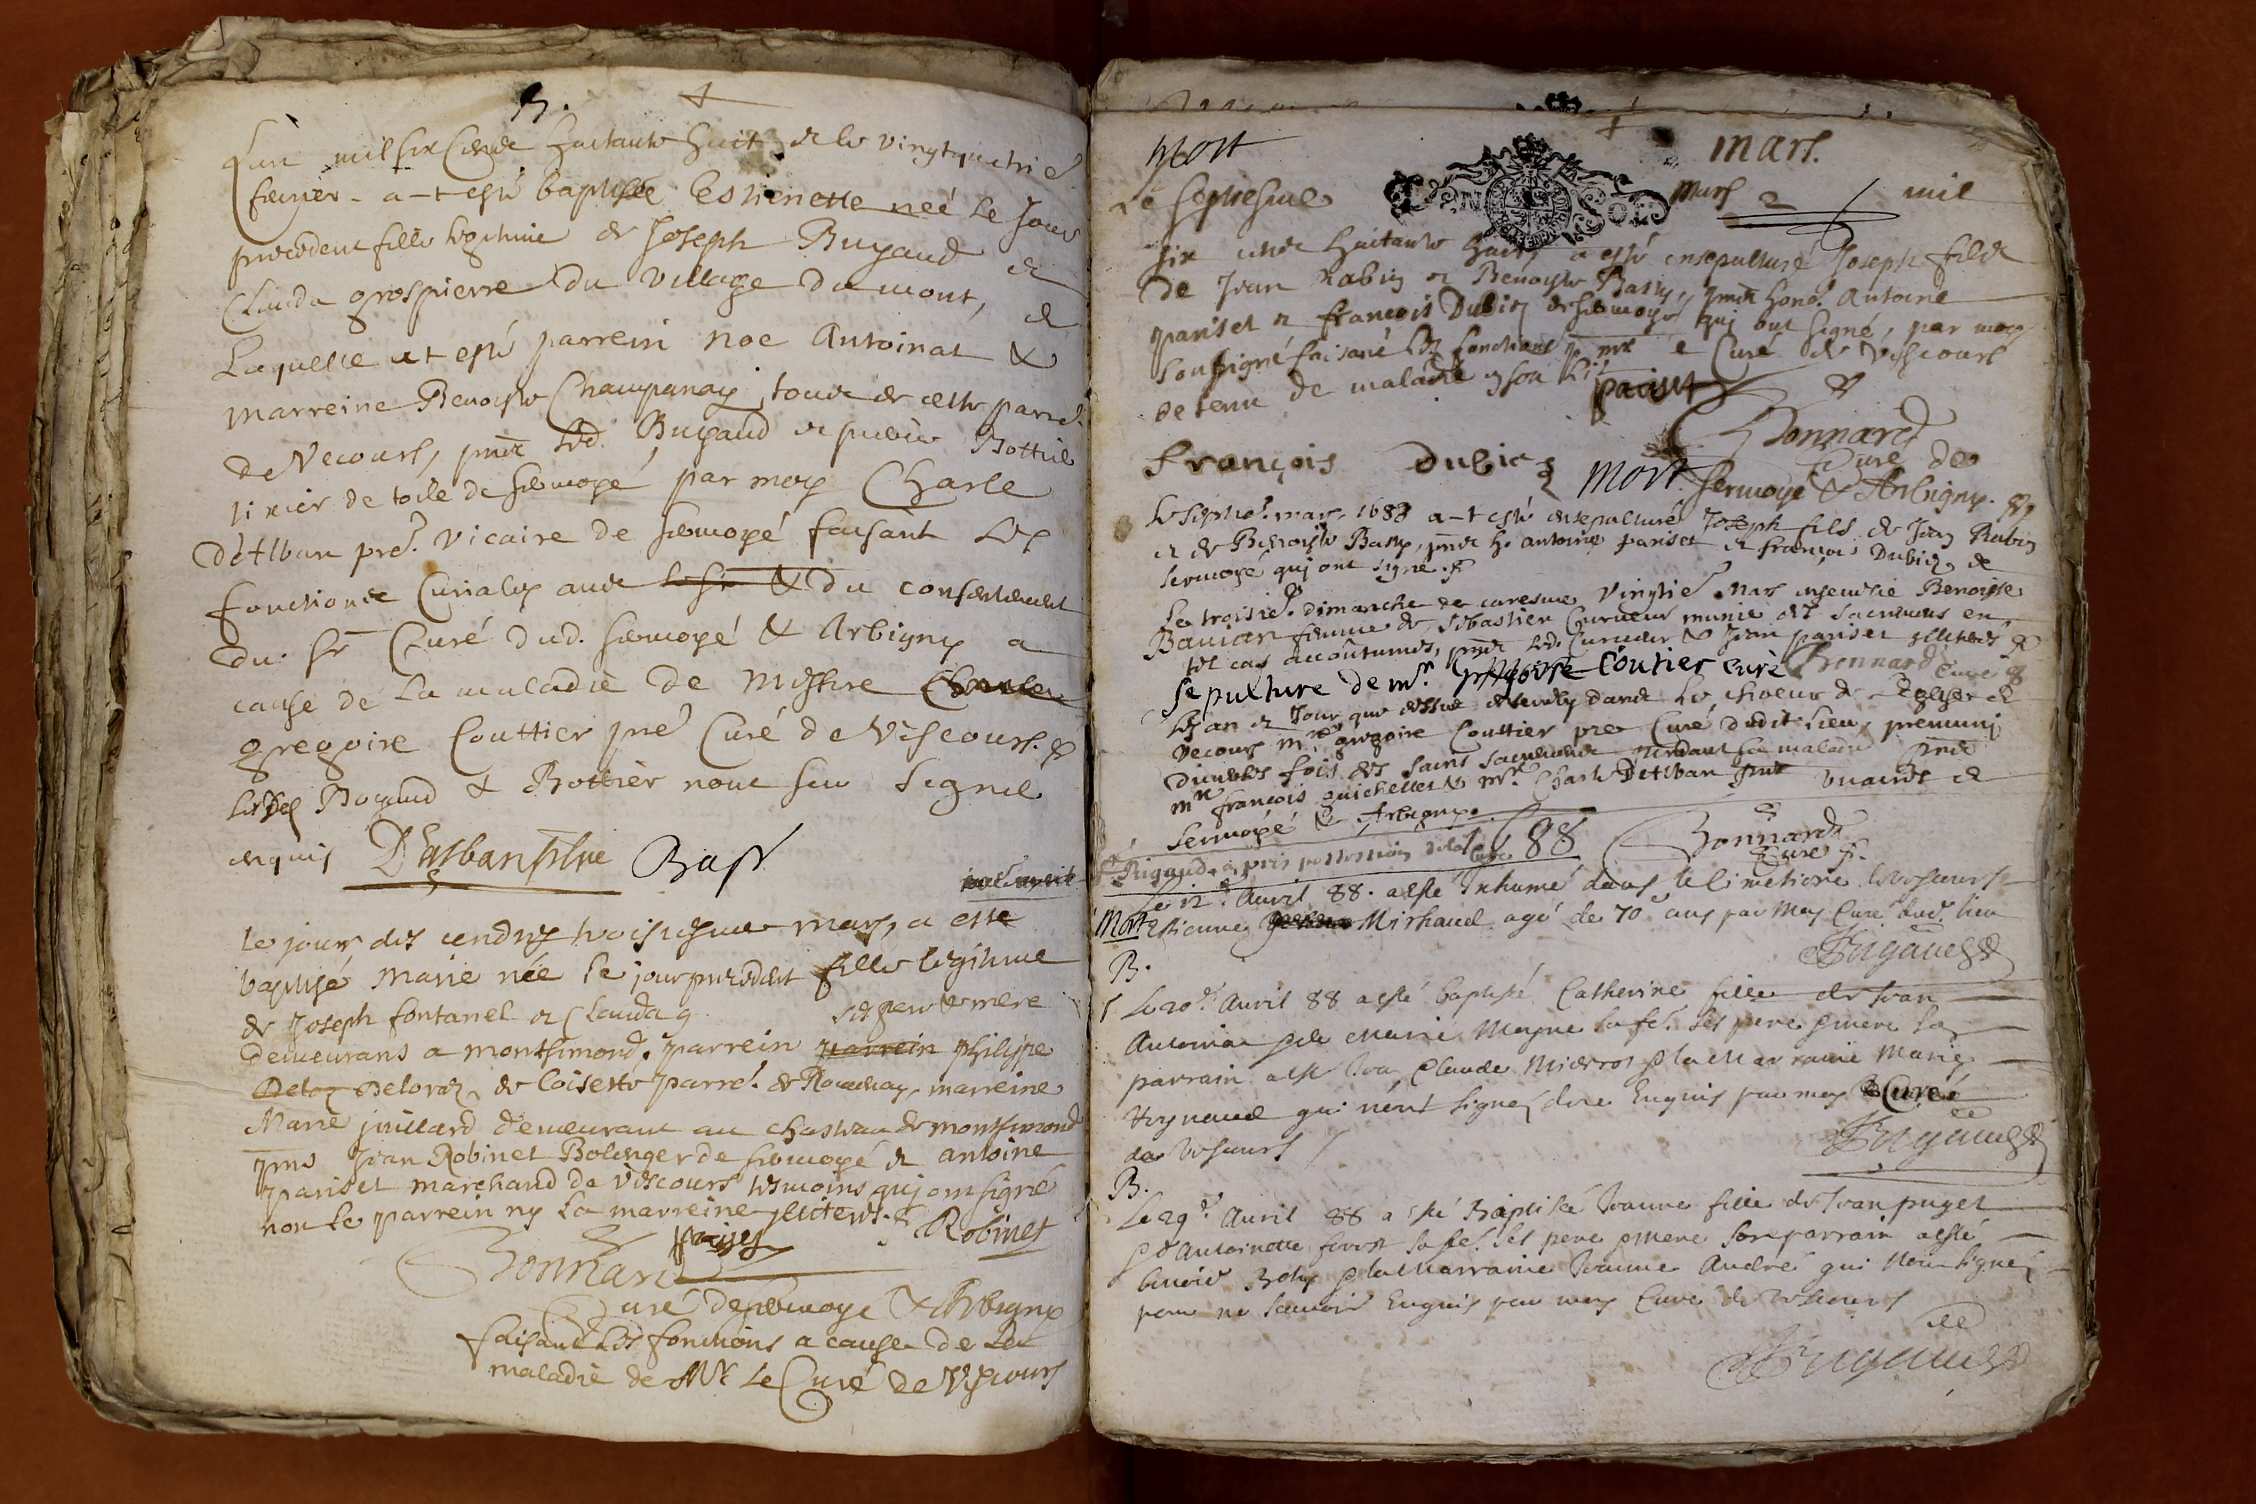 B.
L'an mil six cents huitante huit & le vingtquatrie
feurier a-t-esté baptisée Estienette neé le jour
precedent fille legitime de Joseph Buyaud &
Clauda grospierre du village du mont, &
Laquelle at esté parrein Noe Antoinat &
marreine Benoiste Champanay, tous de cette parre.
de Vecours, pnts led. Buyaud & Bottier
tixier de toile de sermoyé par moy Charle
D'Alban pre. vicaire de sermoyé faisant les
fonctions Curiales & du consentement
du Sr Curé dud. sermoyé & Arbigny a
cause de la maladie de Messire
gregoire Couttier pre Curé de Vescours.
Lesd. Boyaud & Bottier n'ont sceu signé
enquis D'Alban ptre Bast
le jour des cendres troisiesme mars, a esté
baptisé Marie née le jour precedent fille legitime
de Joseph fontanel et Clauda ses pere & mere
demeurans a montsimond. parrein parrein philippe
Deloraz de Loisette parre. de marreine
Marie juillard demeurant au chasteau de montsimond
pnts Jean Robinet Bolenger de sermoyé & antoine
pariset marchand de Vescours tesmoins qui ont signé
non le parrein ny la marreine illiterés. Robinet
Bonnard pariset
Curé de sermoye & Arbigny
faisant les fonctions a cause de la
maladie de Mr Le Curé de Vescours
Mort mars.
Le septiesme mars mil
six cents huitante huit a esté ensepulturé Joseph fils
de Jean Rabin et Benoiste Basty, pnts hono. Antoine
pariset et françois Dubiez de sermoyé qui ont signé, par moy
soussigné faisant les fonctions pr Mr le Curé de Vescours
detenu de maladie en son lit
pariset
Bonnard
françois Dubiez
Curé de
sermoyé & Arbigny.
Mort
Le septie. mars 1688 a-t-esté ensepulturé Joseph fils de Jean Rabin
et de Benoiste Basty, pnts ho. antoine pariset et françois Dubiez de
sermoyé qui ont signé.
Le troisie. dimanche de caresme vingtie mars ensevelie Benoiste
femme de Sebastien Curveur munie des sacremens en
tel cas accoutumés, pnts led. Curveur & Jean pariset illiterés
Bonnard Curé
sepulture de mr. gregoire Coutier curé
Lesd. an et jour que dessus ensevely dans le choeur de l'Eglise de
Vecours mre gregoire Couttier pre Curé dudit lieu, premuni
diverses fois des saints sacremens pendant sa maladie pnts
mre françois guichellet & mre Charle D'Alban ptre vicaires de
Sermoyé & Arbigny.
Bonnard
Curé
Rigaud a pris possession de la Cure 1688
Le 12e. Auril 88. a esté Inhumé dans le Cimetiere de vescours
Mort Estienne Mishaud agé de 70 ans par Moy Curé dud. lieu
Rigaud
B.
Le 20e. Auril 88 a esté baptisé Catherine fille de Jean
Antoinat & de Marie Moyne sa fe. ses pere & mere le
parrain a esté Jean Claude Mierrot & la Marraine Marie
Reynaud qui n'ont signé de ce Enquis par moy Curé
de Vescours
Rigaud
B.
Le 29e. Auril 88 a esté Baptisé Jeanne fille de Jean puget
& d'Antoinette sa fe. ses pere & mere son parrain a esté
benoid & la Marraine Jeanne André qui n'ont signé
pour ne scauoir Enquis par moy Curé de Vescours
Rigaud